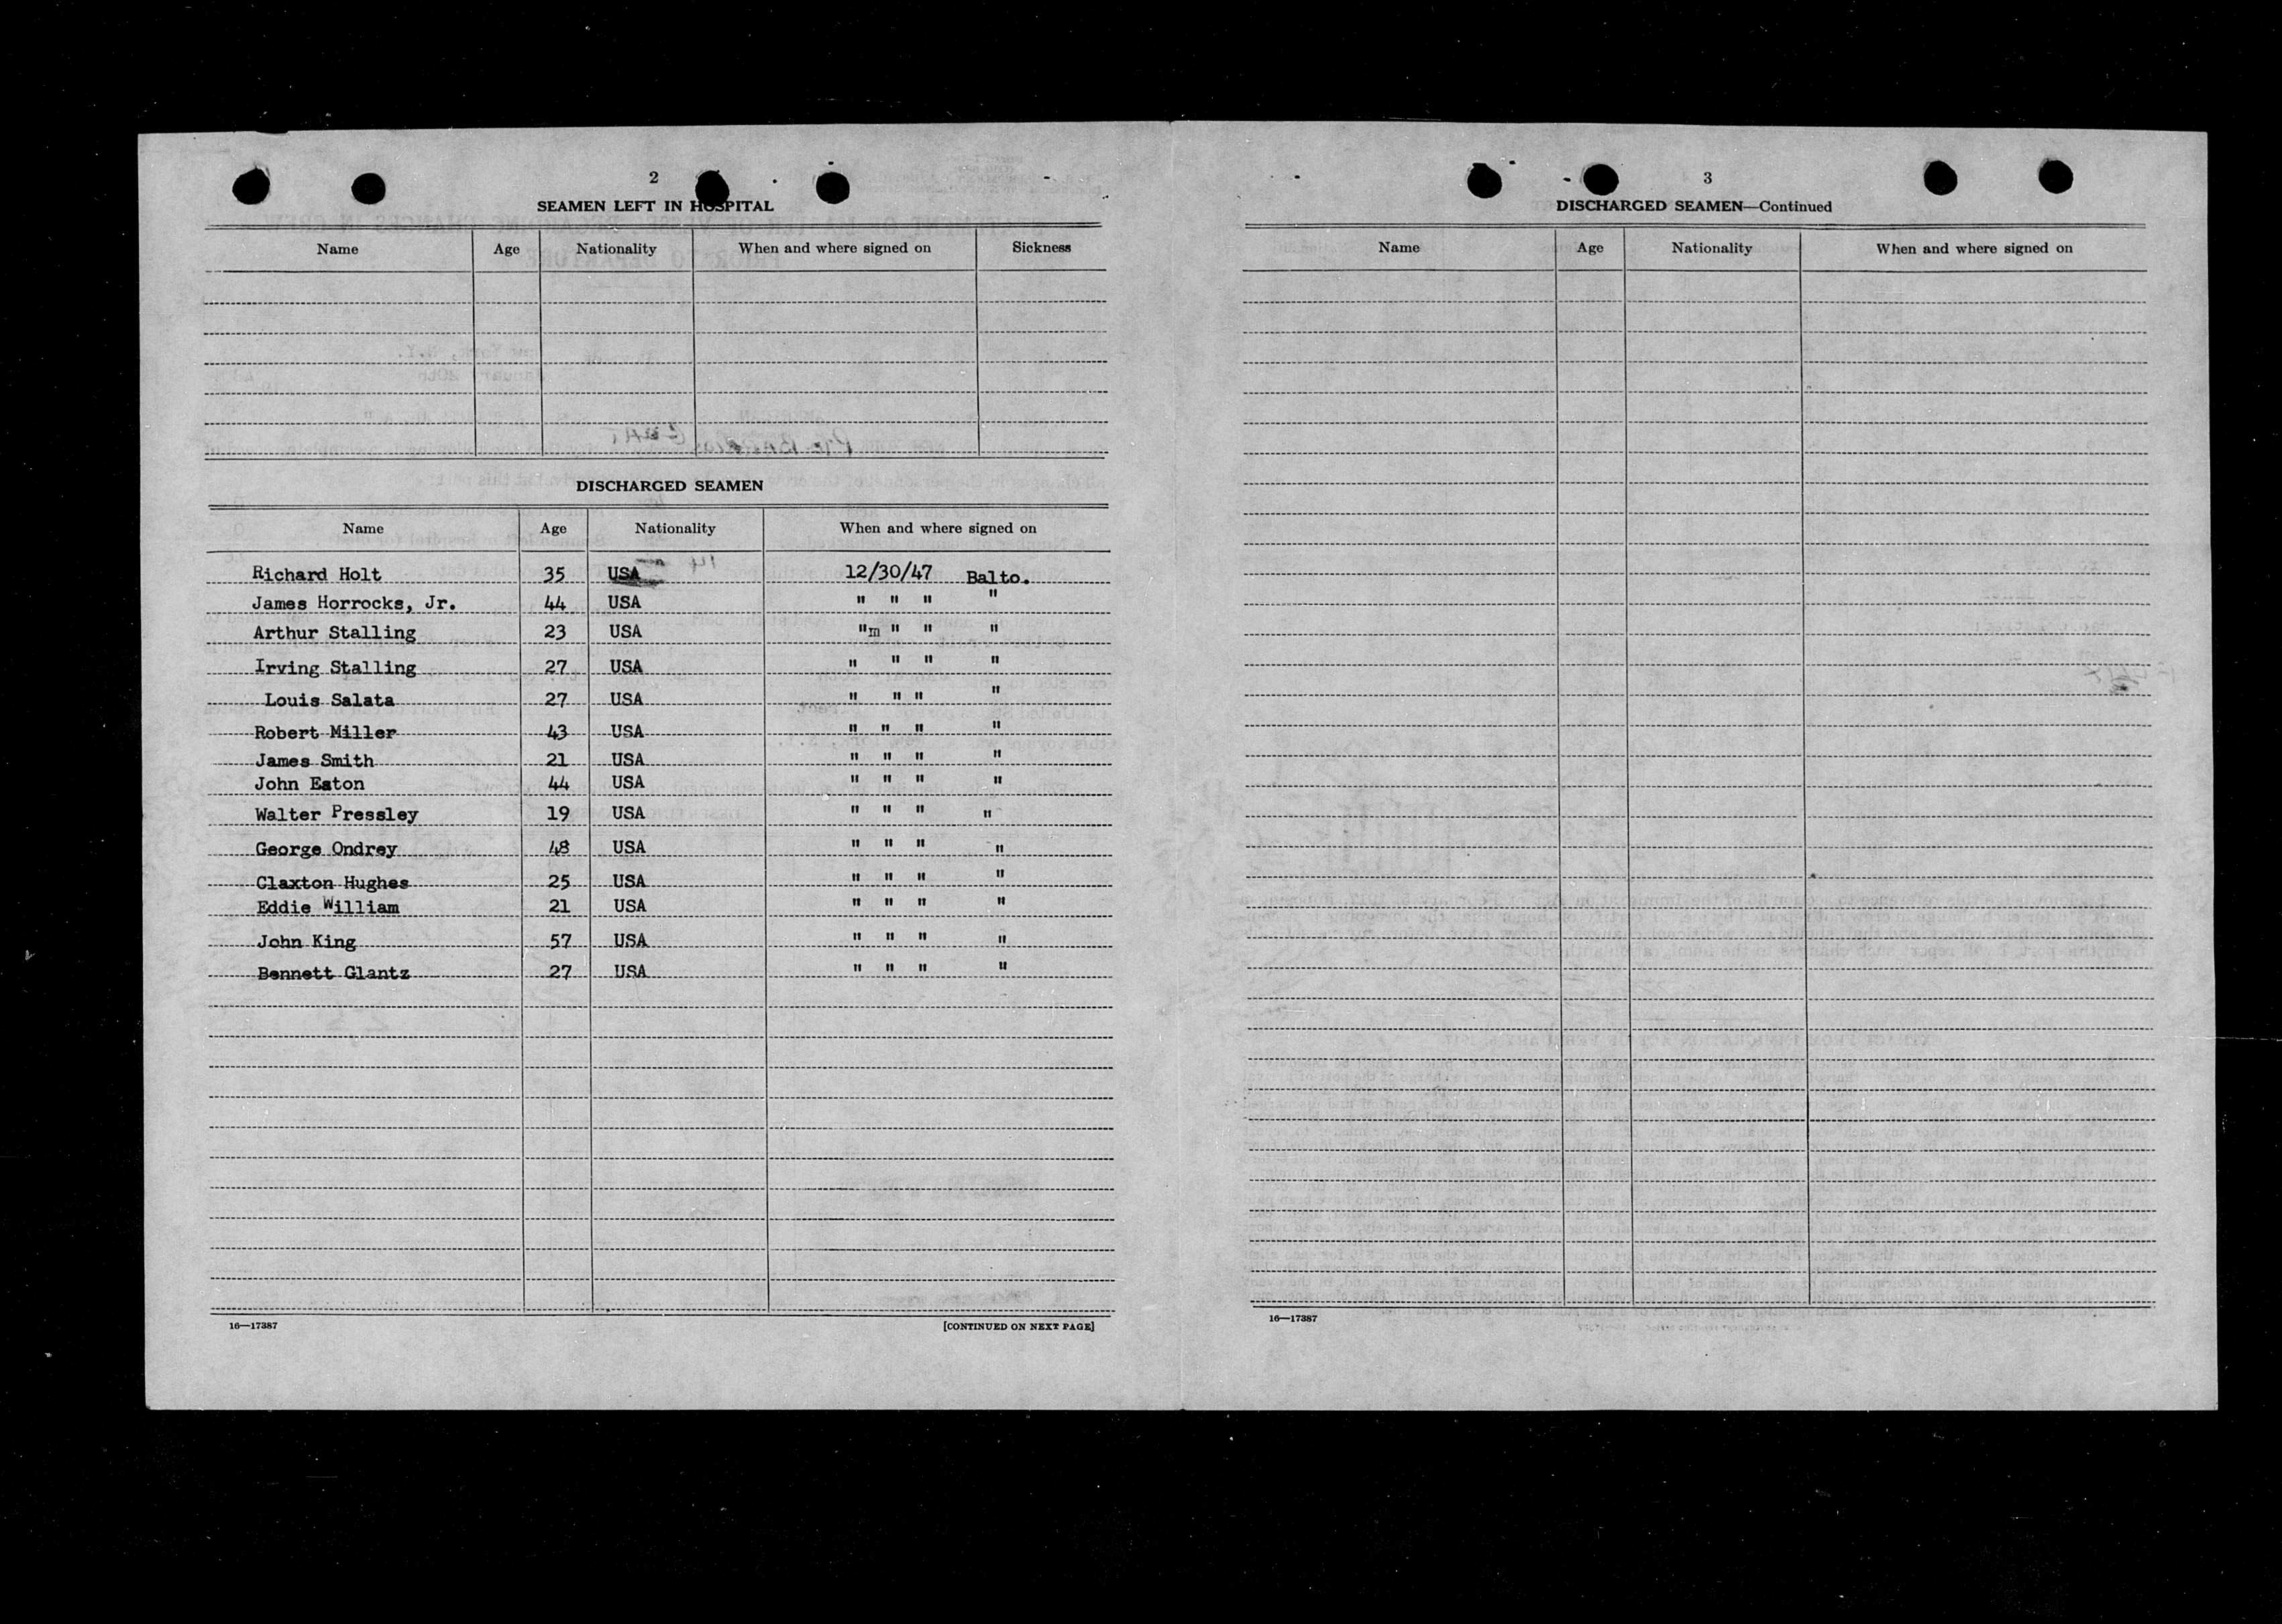 2
SEAMEN LEFT IN HOSPITAL
Name Age Nationality When and where signed on Sickness
DISCHARGED SEAMEN
Name Age Nationality When and where signed on
Richard Holt 35 USA 12/30/47 Balto.
James Horrocks, Jr. 44 USA " " " "
Arthur Stalling 23 USA "m " " "
Irving Stalling 27 USA " " " "
Louis Salata 27 USA " " " "
Robert Miller 43 USA " " " "
James Smith 21 USA " " " "
John Eaton 44 USA " " " "
Walter Pressley 19 USA " " " "
George Ondrey 48 USA " " " "
Claxton Hughes 25 USA " " " "
Eddie William 21 USA " " " "
John King 57 USA " " " "
Bennett Glantz 27 USA " " " "
16—17387 [CONTINUED ON NEXT PAGE]
3
DISCHARGED SEAMEN—Continued
Name Age Nationality When and where signed on
16—17387